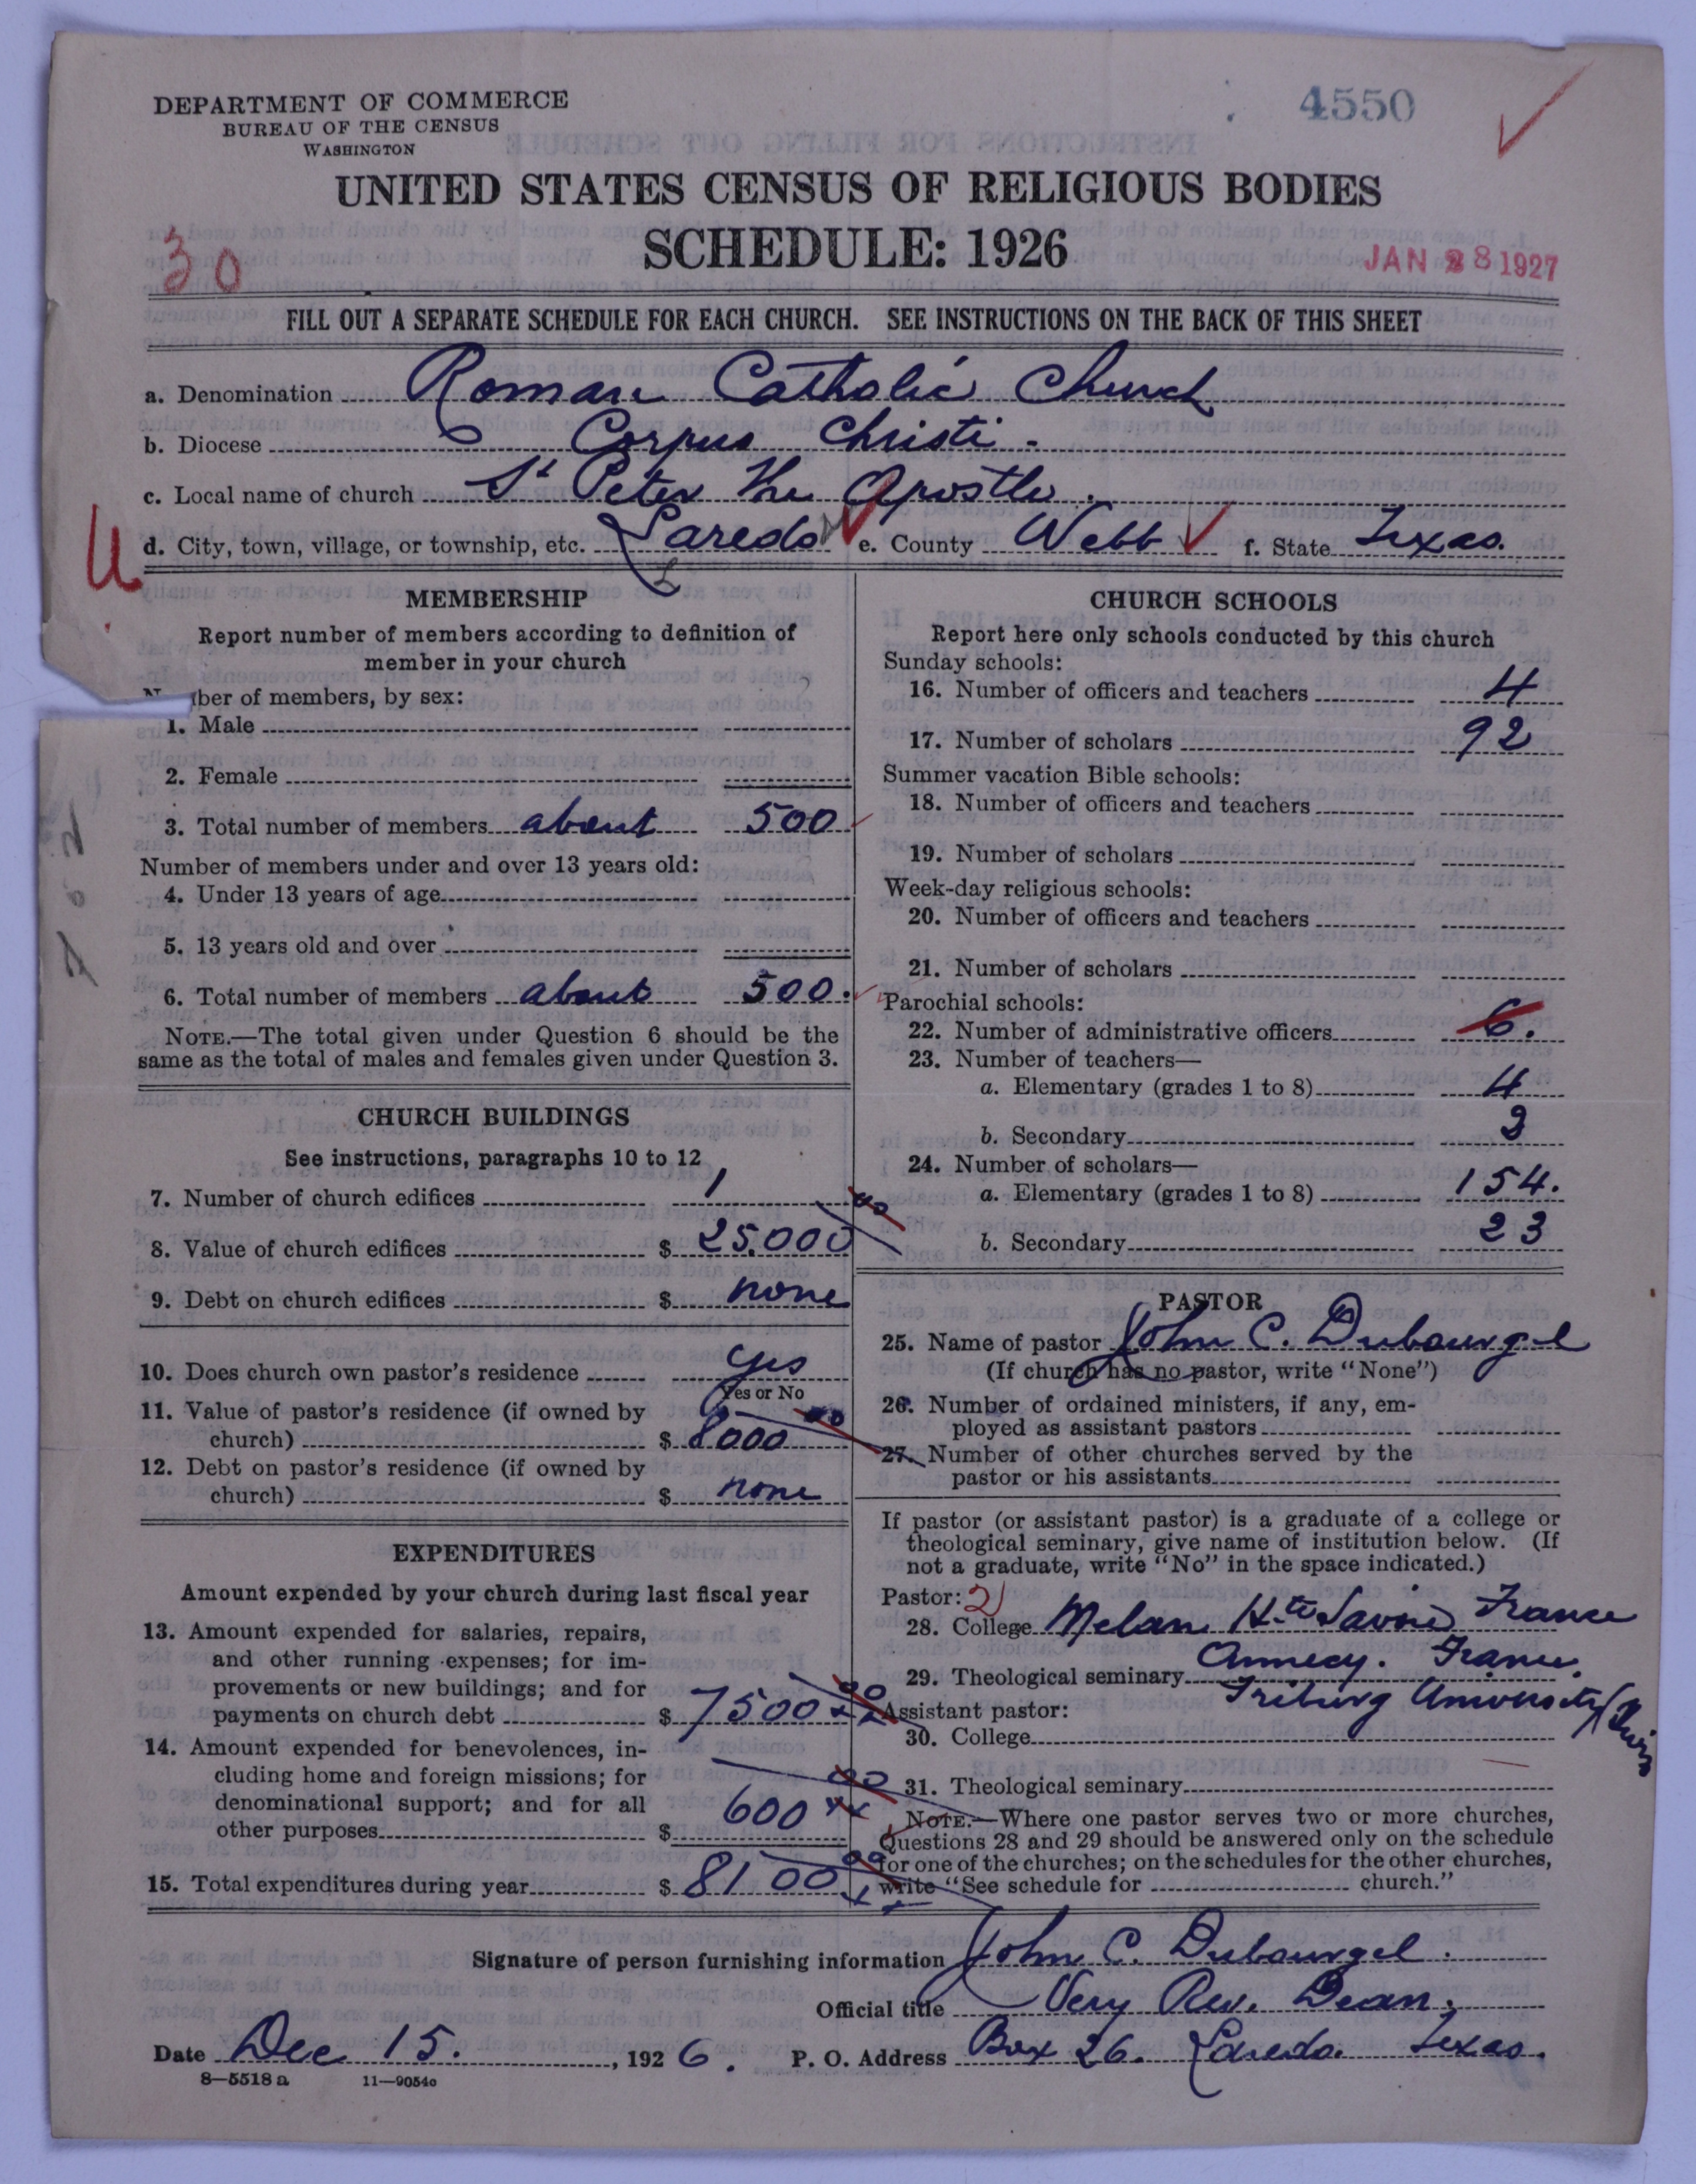 4550
DEPARTMENT OF COMMERCE
BUREAU OF THE CENSUS
WASHINGTON
UNITED STATES CENSUS OF RELIGIOUS BODIES
SCHEDULE: 1926
30
JAN 28 1927
FILL OUT A SEPARATE SCHEDULE FOR EACH CHURCH. SEE INSTRUCTIONS ON THE BACK OF THIS SHEET
a. Denomination Roman Catholic Church
b. Diocese Corpus Christi.
c. Local name of church St Peter the Apostle.
d. City, town, village, or township, etc. Laredo e. County Webb f. State Texas.
U
MEMBERSHIP
Report number of members according to definition of
member in your church
ber of members, by sex:
1. Male
2. Female
3. Total number of members about 500
Number of members under and over 13 years old:
4. Under 13 years of age
5. 13 years old and over
6. Total number of members about 500.
NOTE.—The total given under Question 6 should be the
same as the total of males and females given under Question 3.
CHURCH BUILDINGS
See instructions, paragraphs 10 to 12
7. Number of church edifices 1
8. Value of church edifices $ 25.000
9. Debt on church edifices $ none
10. Does church own pastor's residence yes
Yes or No
11. Value of pastor's residence (if owned by
church) $ 8000
12. Debt on pastor's residence (if owned by
church) $ none
EXPENDITURES
Amount expended by your church during last fiscal year
13. Amount expended for salaries, repairs,
and other running expenses; for im-
provements or new buildings; and for
payments on church debt $ 7500 00
14. Amount expended for benevolences, in-
cluding home and foreign missions; for
denominational support; and for all
other purposes $ 600 00
15. Total expenditures during year $ 8100 00
CHURCH SCHOOLS
Report here only schools conducted by this church
Sunday schools:
16. Number of officers and teachers 4
17. Number of scholars 92
Summer vacation Bible schools:
18. Number of officers and teachers
19. Number of scholars
Week-day religious schools:
20. Number of officers and teachers
21. Number of scholars
Parochial schools:
22. Number of administrative officers 6.
23. Number of teachers—
a. Elementary (grades 1 to 8) 4
b. Secondary
24. Number of scholars—
a. Elementary (grades 1 to 8) 154.
b. Secondary 23
PASTOR
25. Name of pastor John C. Dubourgel
(If church has no pastor, write "None")
26. Number of ordained ministers, if any, em-
ployed as assistant pastors
27. Number of other churches served by the
pastor or his assistants
If pastor (or assistant pastor) is a graduate of a college or
theological seminary, give name of institution below. (If
not a graduate, write "No" in the space indicated.)
Pastor: 2
28. College Melan Hte Savoie France
29. Theological seminary Annecy. France.
Friburg University
Assistant pastor:
30. College
31. Theological seminary
NOTE.—Where one pastor serves two or more churches,
Questions 28 and 29 should be answered only on the schedule
for one of the churches; on the schedules for the other churches,
write "See schedule for church."
Signature of person furnishing information John C. Dubourgel.
Official title Very Rev. Dean.
Date Dec 15., 1926. P. O. Address Box 26. Laredo. Texas.
8—5518 a 11—9054c